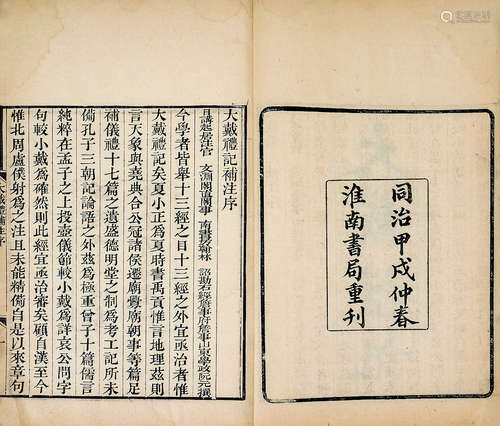 同治甲戌仲春
淮南書局重刊
大戴禮記補注序
日講起居注官 文淵閣直閣事 南書房翰林 詔勘石經詹事府詹事山東學政阮元撰
今學者皆舉十三經之目十三經之外宜亟治者惟
大戴禮記矣夏小正為夏時書禹貢惟言地理茲則
言天象與堯典合公冠諸侯遷廟釁廟朝事等篇足
補儀禮十七篇之遺盛德明堂之制為考工記所未
備孔子三朝記論語之外茲為極重曾子十篇儒言
純粹在孟子之上投壺儀節較小戴為詳哀公問字
句較小戴為確然則此經宜亟治審矣顧自漢至今
惟北周盧僕射為之注且未能精備自是以來章句
大戴禮補序